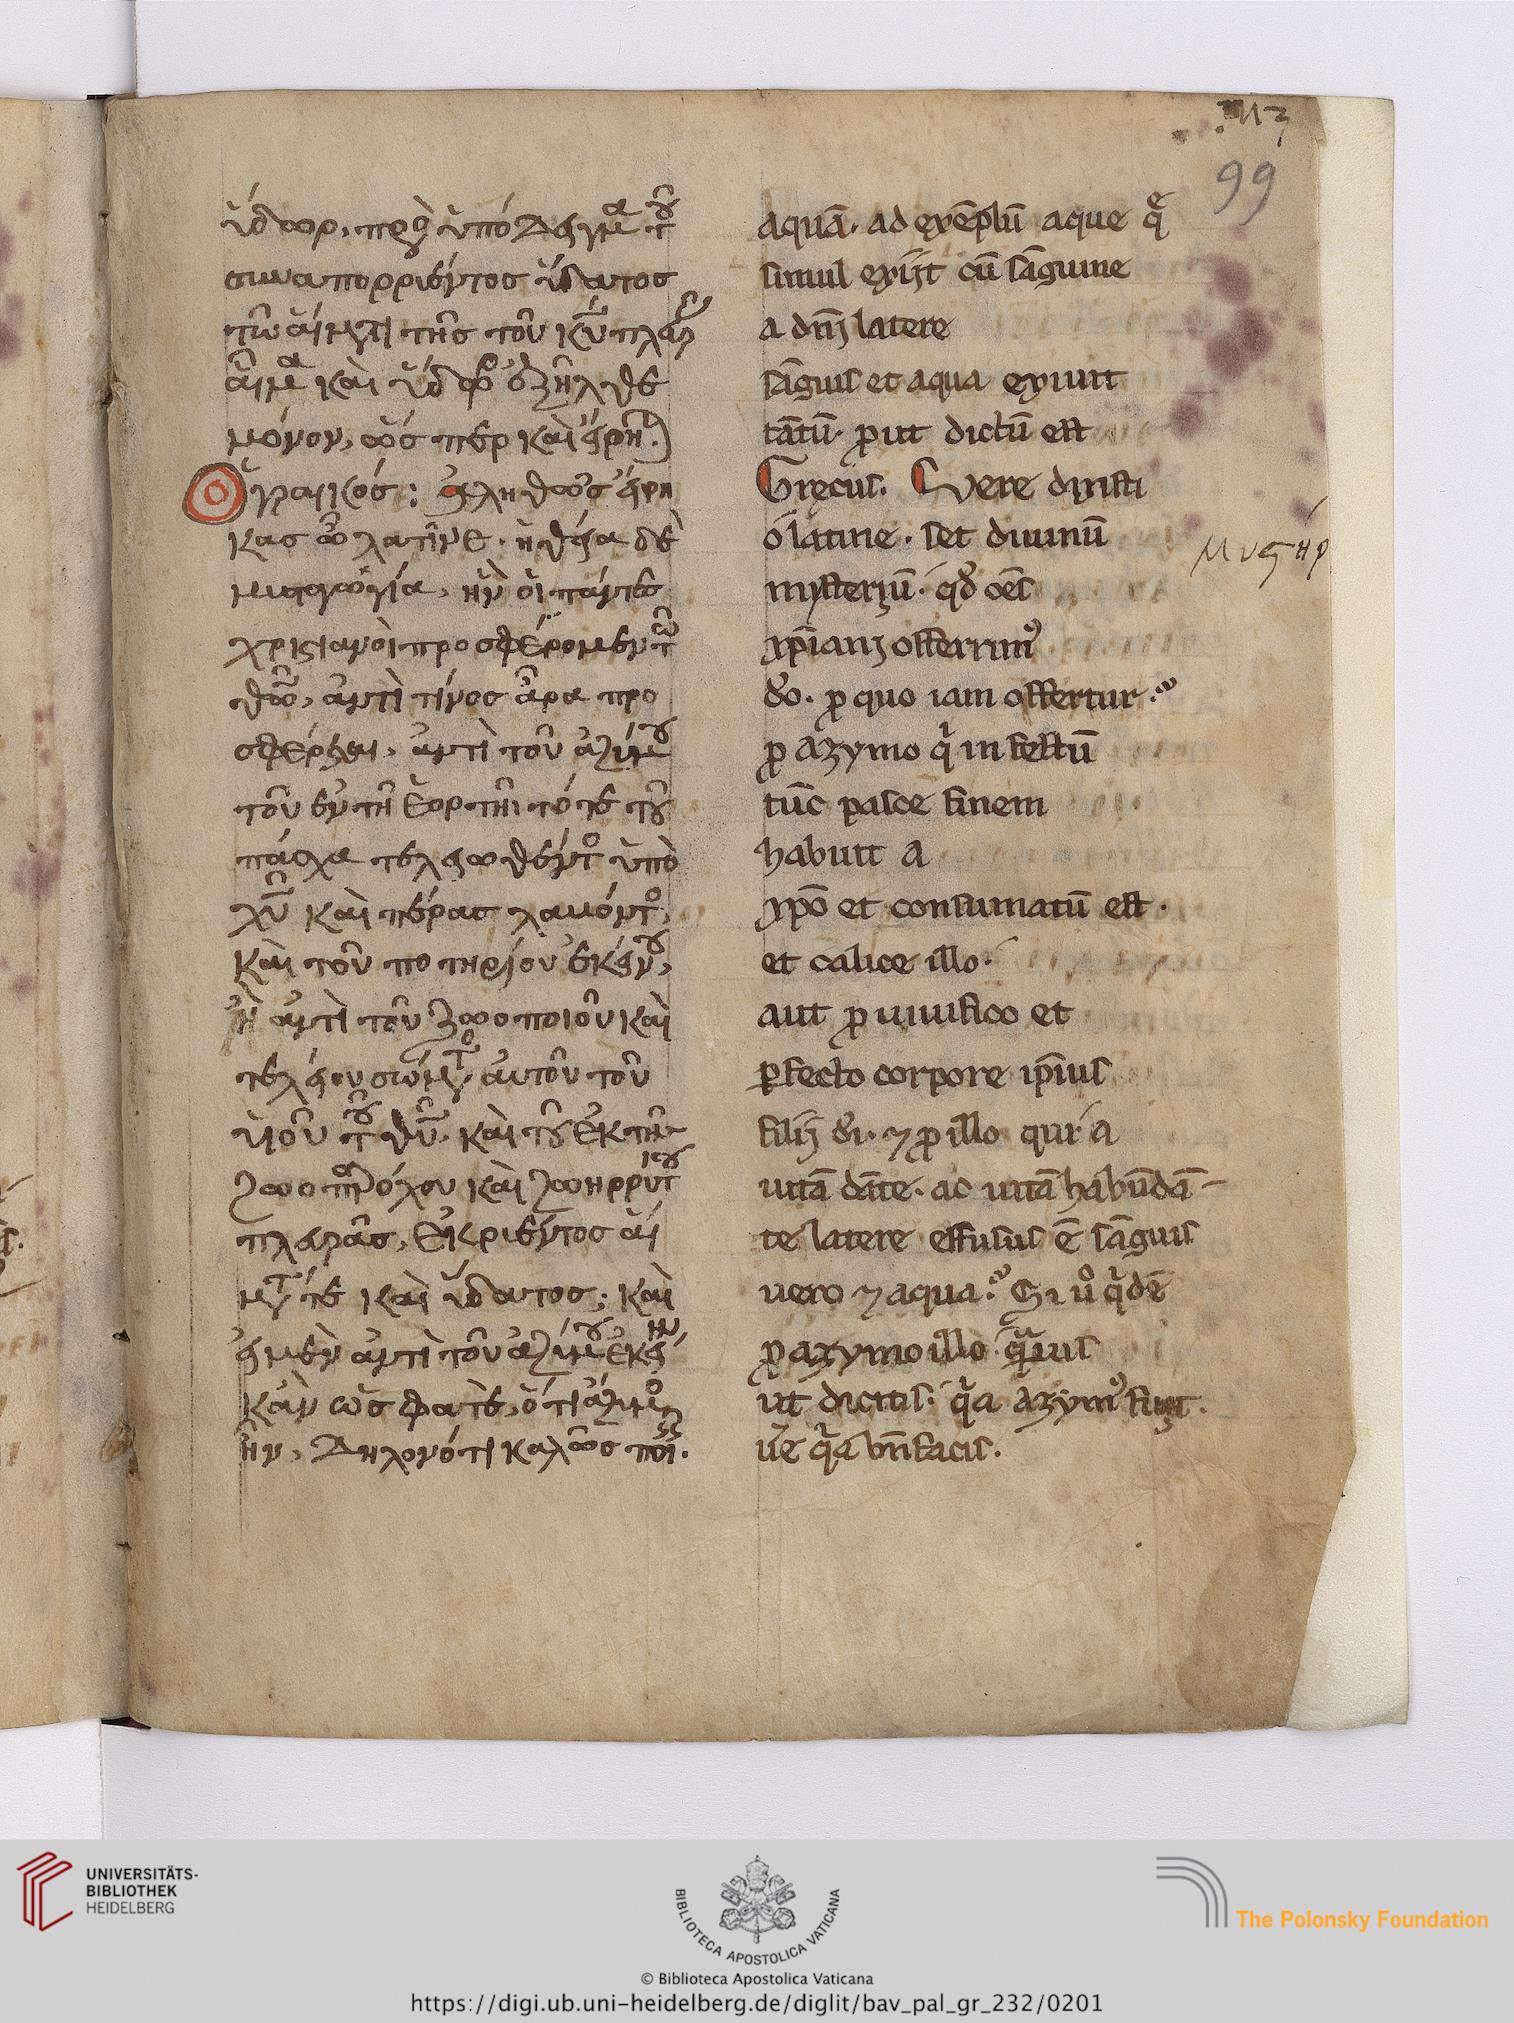 99
ὕδωρ, πρὸς ὑπόδειγμα τοῦ
συναπορριέντος ὕδατος
τῶ αἵματι τῆς τοῦ κυ πλευρᾶς
αἷμα καὶ ὕδωρ ἐξῆλθε
μόνον, ὥς περ καὶ εἴρητ.
Ὁ γραικός: ἀληθῶς εἴρη
κας ὦ λατῖνε. ἡ θεία δὲ
μυσταγωγία, ἣν οἱ πάντες
χριστιανοὶ προσφέρομεν τῶ
θῶ, ἀντὶ τίνος ἆρα προ
σφέρεται, ἀντὶ τοῦ ἀζύμου
τοῦ ἐν τῆ ἑορτῆι τότε τοῦ
πάσχα τελειωθέντος ὑπὸ
χυ καὶ πέρας λαβόντος,
καὶ τοῦ ποτηρίου ἐκείνου,
ἢ ἀντὶ τοῦ ζωοποιοῦ καὶ
τελείου σώματος αὐτοῦ τοῦ
υἱοῦ τοῦ θυ. καὶ τοῦ ἐκ τῆς
ζωοπαρόχου καὶ ζωηρρύτου
πλευρᾶς, ἐκκριθέντος αἵ
ματός τε καὶ ὕδατος; καὶ
εἰ μὲν ἀντὶ τοῦ ἀζύμου ἐκείνου
κἂν ὥς φατὲ, ὅτι ἄζυμος
ἦν, Δηλονότι καλῶς ποιεῖς.
aquā. ad exēplū aque q̄
simul exiit cū sāguine
a dnj latere
sāguis et aqua exiuit
tātū. prout dictū est
Grecus. Vere dixisti
o latine. set diuinū
mysteriū. qd oēs
xpiani offerrimꝰ
dō. pro quo iam offertur.
pro azymo q̄ in festū
tūc pasce finem
habuit a
xpo et consumatū est.
et calice illo.
aut pro uiuifico et
perfecto corpore ipius
filij di. ⁊ pro illo qui a
uitā dāte. ac uitā habūdā-
te latere effusus ē sāguis
uero ⁊ aqua. Si uº q̄dē
pro azymo illo
ut dicitis. q̄a azymꝰ fuit.
uē q̄a bn facis.
UNIVERSITÄTS-
BIBLIOTHEK
HEIDELBERG
BIBLIOTECA APOSTOLICA VATICANA
© Biblioteca Apostolica Vaticana
The Polonsky Foundation
https://digi.ub.uni-heidelberg.de/diglit/bav_pal_gr_232/0201